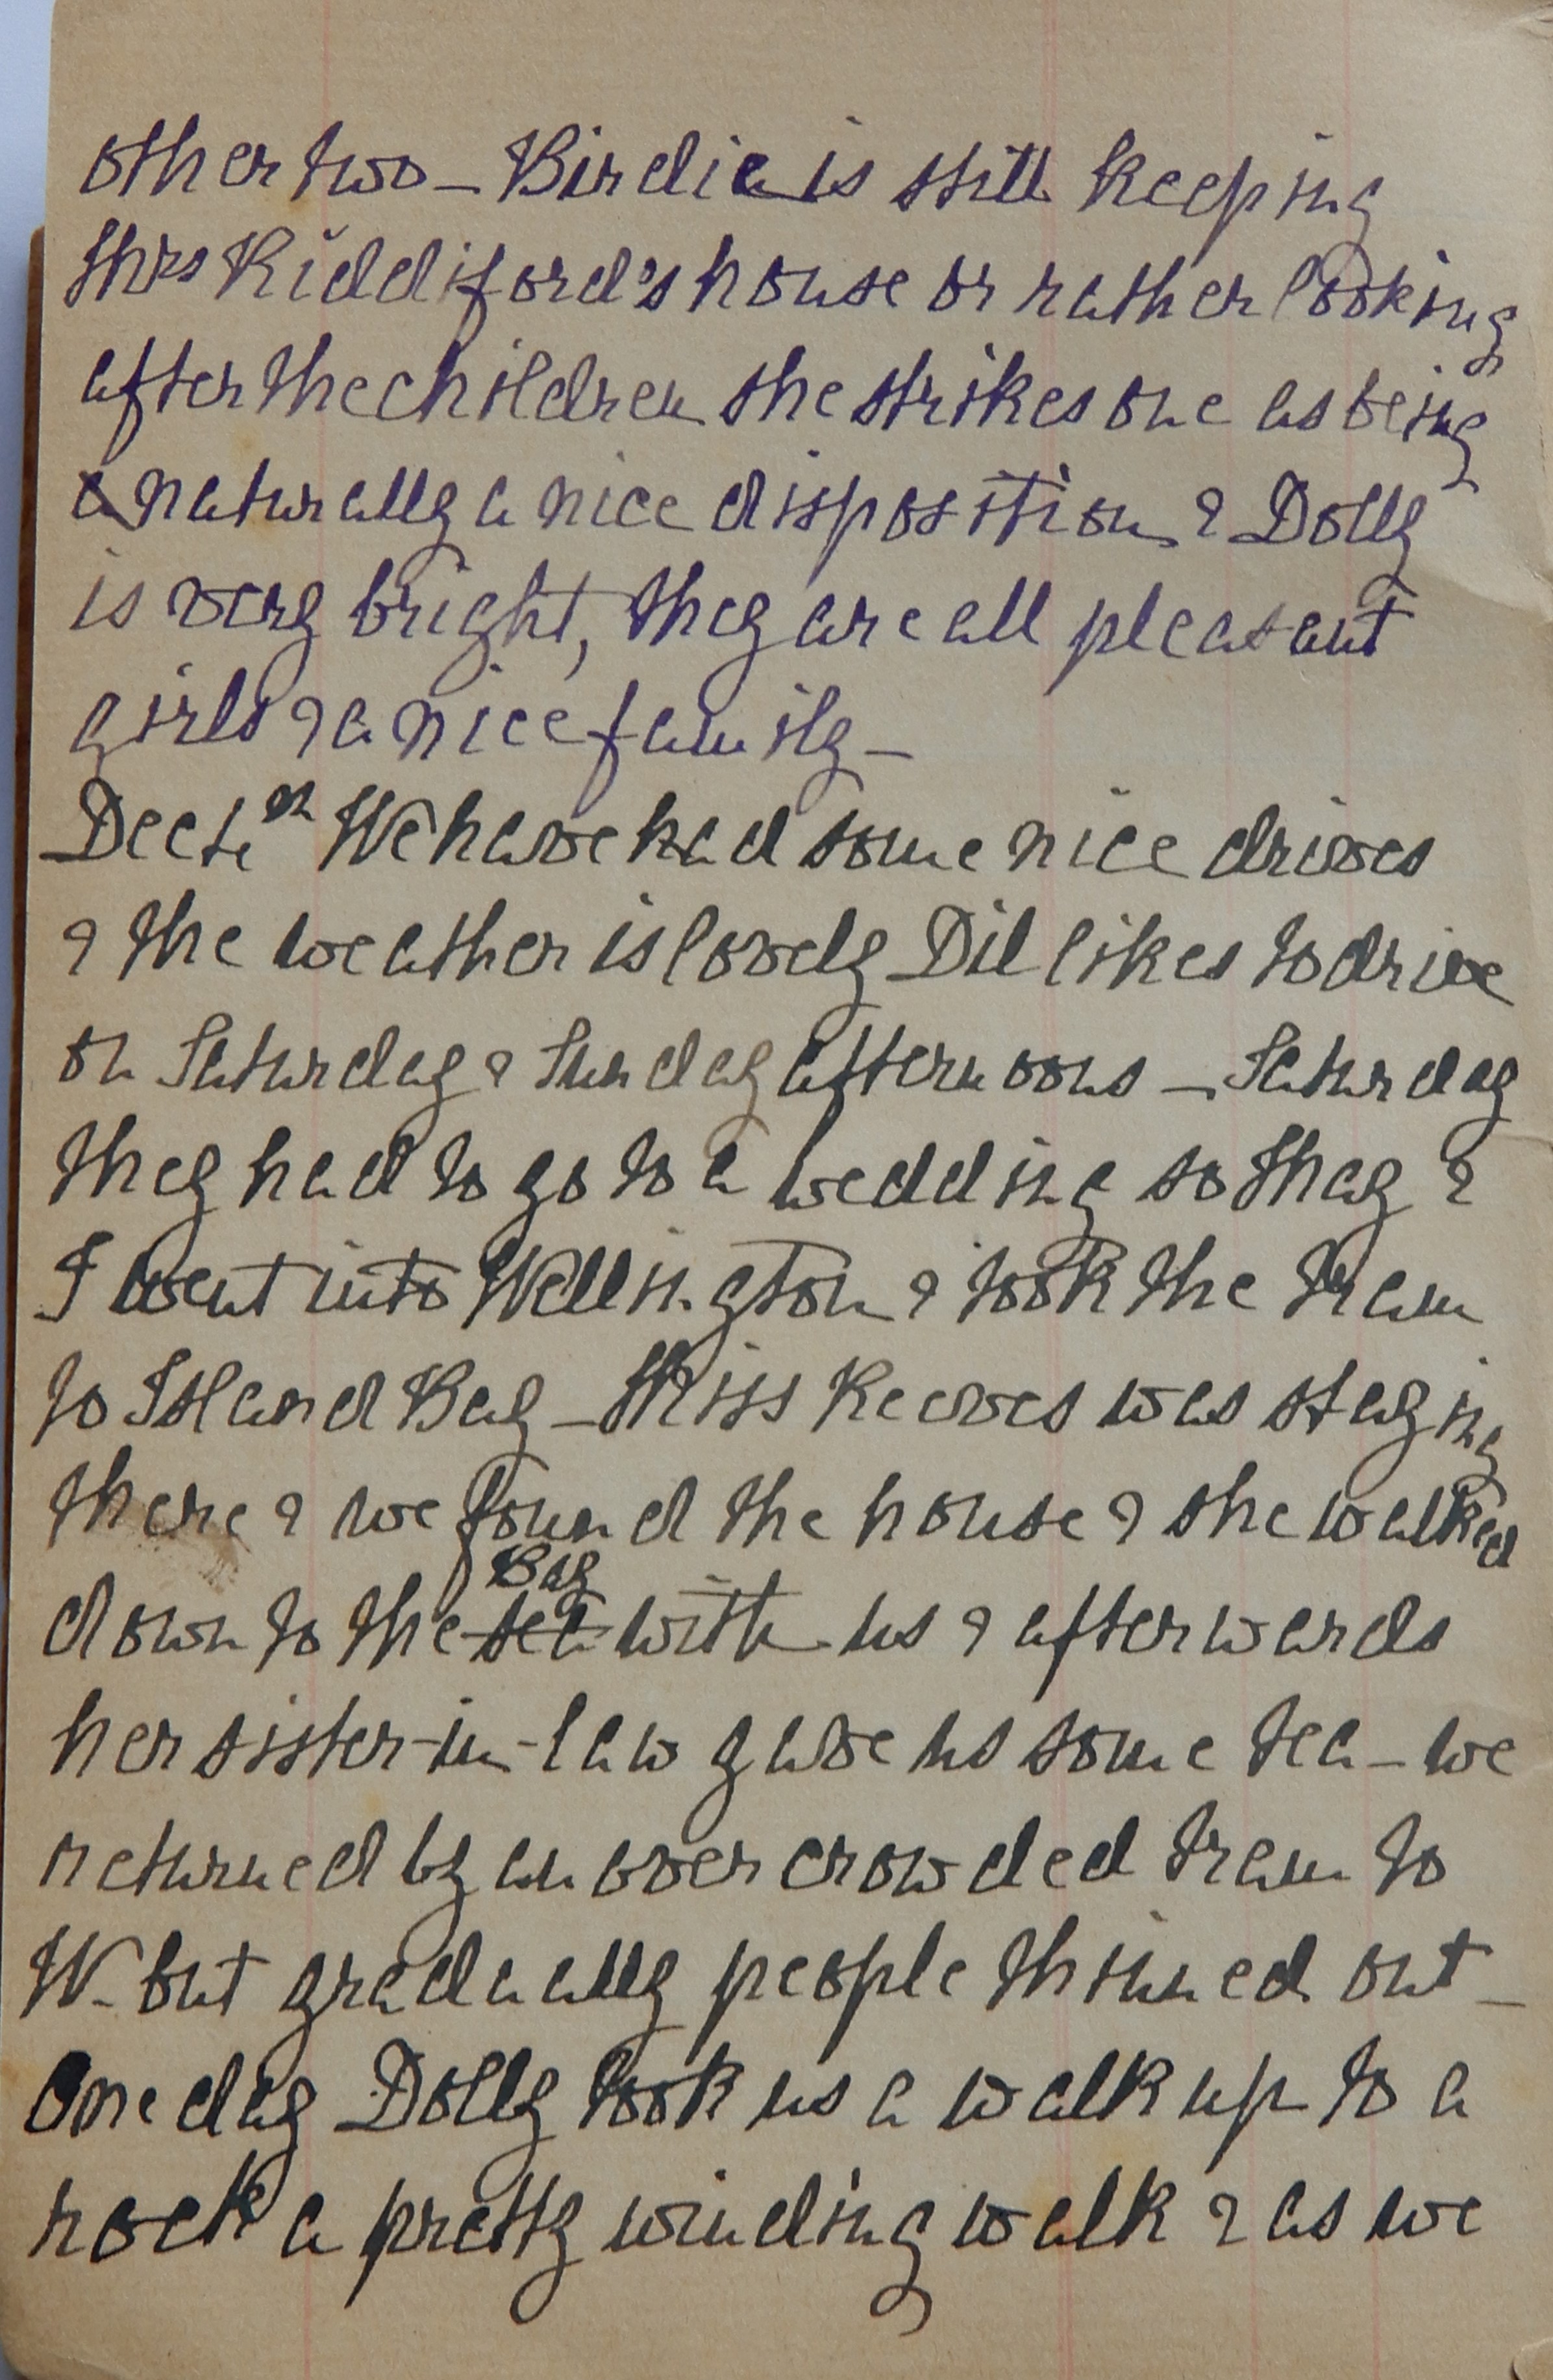 other two - Birdie is still keeping
Mrs Riddiford's house or rather looking
after the children she strikes one as being
a naturally a nice disposition & Dolly
is very bright, they are all pleasant
girls & a nice family -
Dec We have had some nice drives
& the weather is lovely Dil likes to drive
on Saturday & Sunday afternoons - Saturday
they had to go to a wedding so May &
I went into Wellington & took the tram
to Island Bay - Miss Reeves was staying
there & we found the house & she walked
down to the sea Bay with us & afterwards
her sister-in-law gave us some tea - we
returned by an over crowded tram to
W. but gradually people thinned out -
One day Dolly took us a walk up to a
rock a pretty winding walk & as we